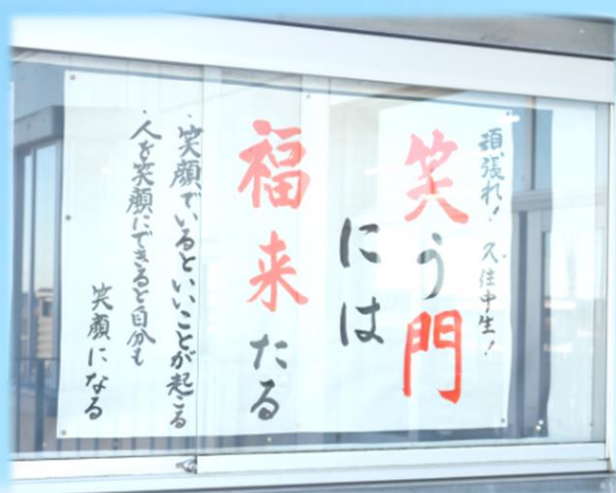 頑張れ！久住中生！
笑う門
には
福来たる
・笑顔でいるといいことが起こる
・人を笑顔にできると自分も
笑顔になる